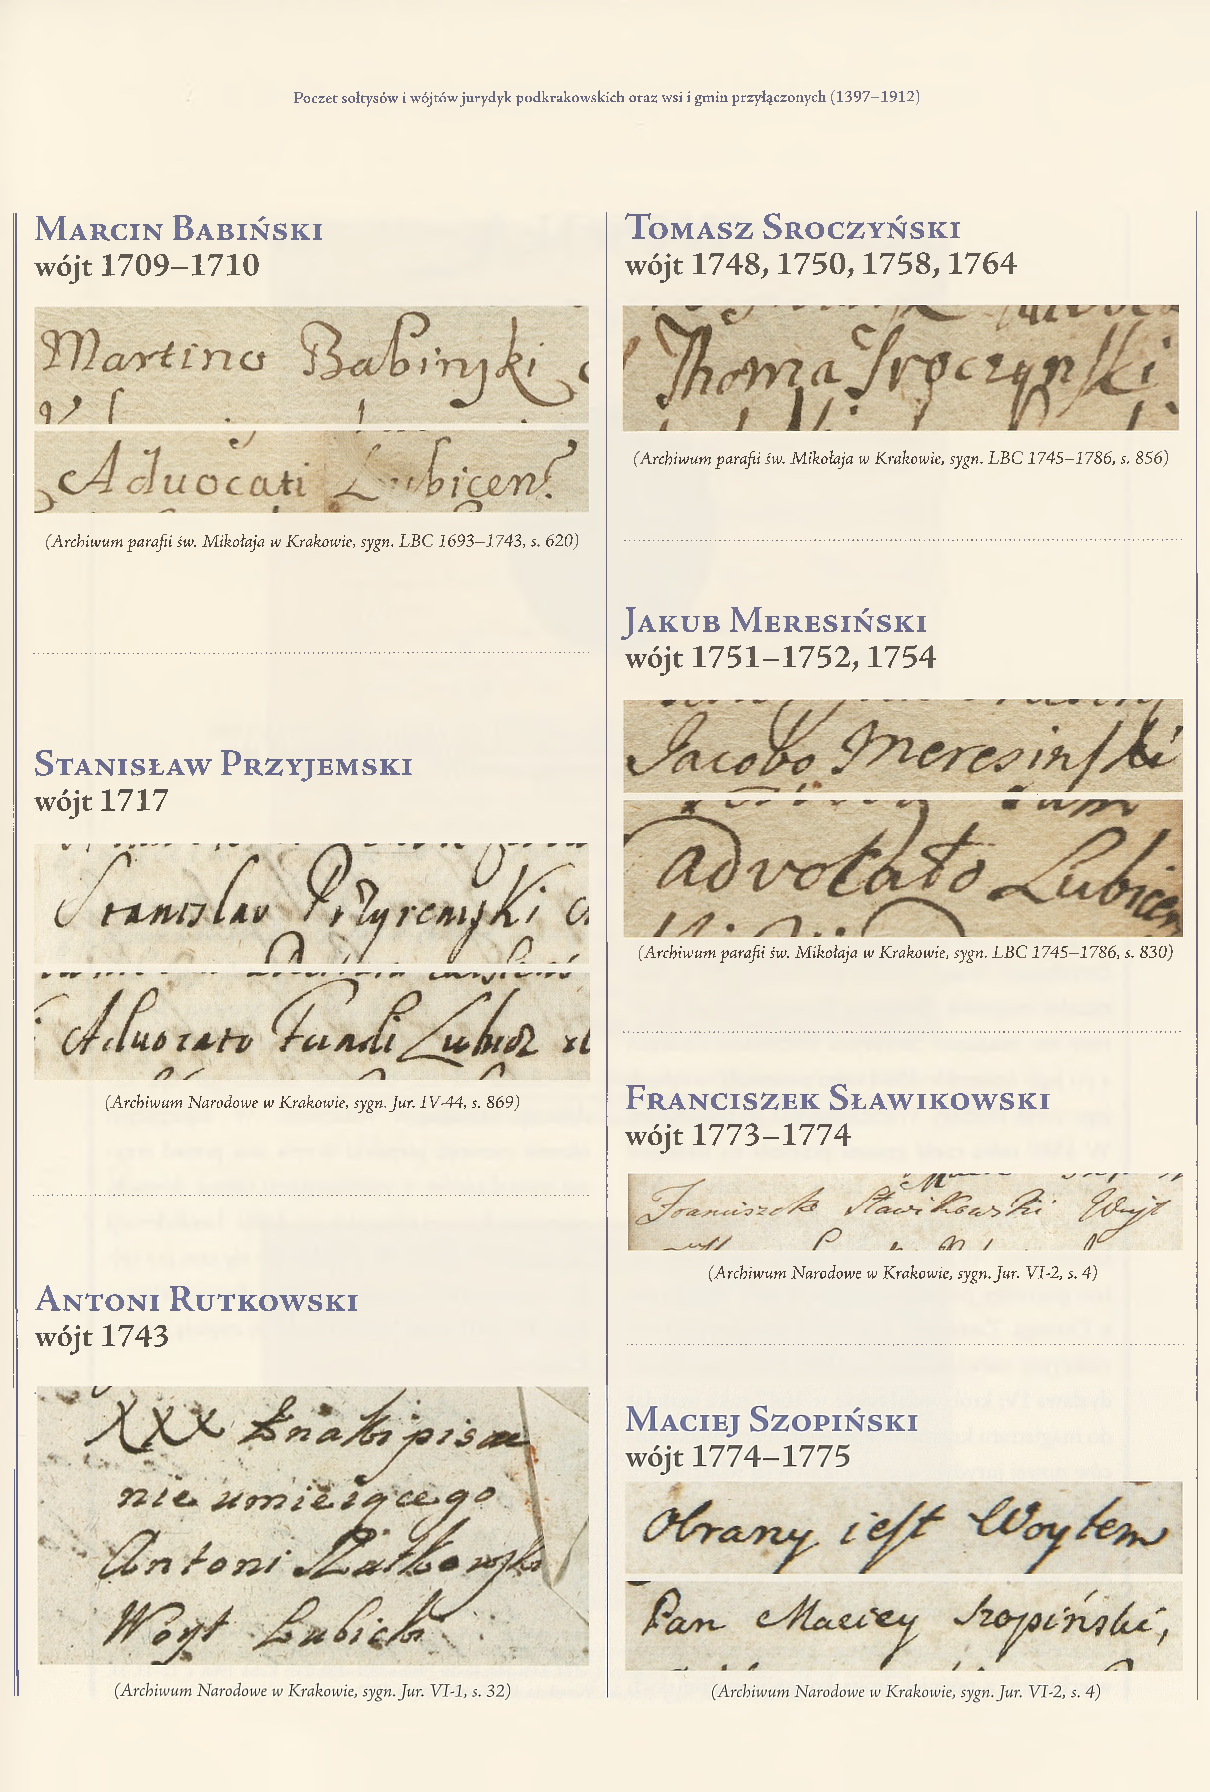 Poczet sołtysów i wójtów jurydyk podkrakowskich oraz wsi i gmin przyłączonych (1397–1912)
Marcin Babiński
wójt 1709–1710
Martino Babinski
Advocati Lubicen
(Archiwum parafii św. Mikołaja w Krakowie, sygn. LBC 1693–1743, s. 620)
Stanisław Przyjemski
wójt 1717
Stanislav Przyiemski
Advocato Fundi Lubicz
(Archiwum Narodowe w Krakowie, sygn. Jur. IV-44, s. 869)
Antoni Rutkowski
wójt 1743
XXX Znaki pisac
nie umieiącego
Antoni Rutkowski
Woyt Lubicki
(Archiwum Narodowe w Krakowie, sygn. Jur. VI-1, s. 32)
Tomasz Sroczyński
wójt 1748, 1750, 1758, 1764
Thoma Sroczynski
(Archiwum parafii św. Mikołaja w Krakowie, sygn. LBC 1745–1786, s. 856)
Jakub Meresiński
wójt 1751–1752, 1754
Jacobo Meresinski
advocato Lubicen
(Archiwum parafii św. Mikołaja w Krakowie, sygn. LBC 1745–1786, s. 830)
Franciszek Sławikowski
wójt 1773–1774
Franciszek Sławikowski Wujt
(Archiwum Narodowe w Krakowie, sygn. Jur. VI-2, s. 4)
Maciej Szopiński
wójt 1774–1775
Obrany iest Woytem
Pan Maciey Szopiński,
(Archiwum Narodowe w Krakowie, sygn. Jur. VI-2, s. 4)